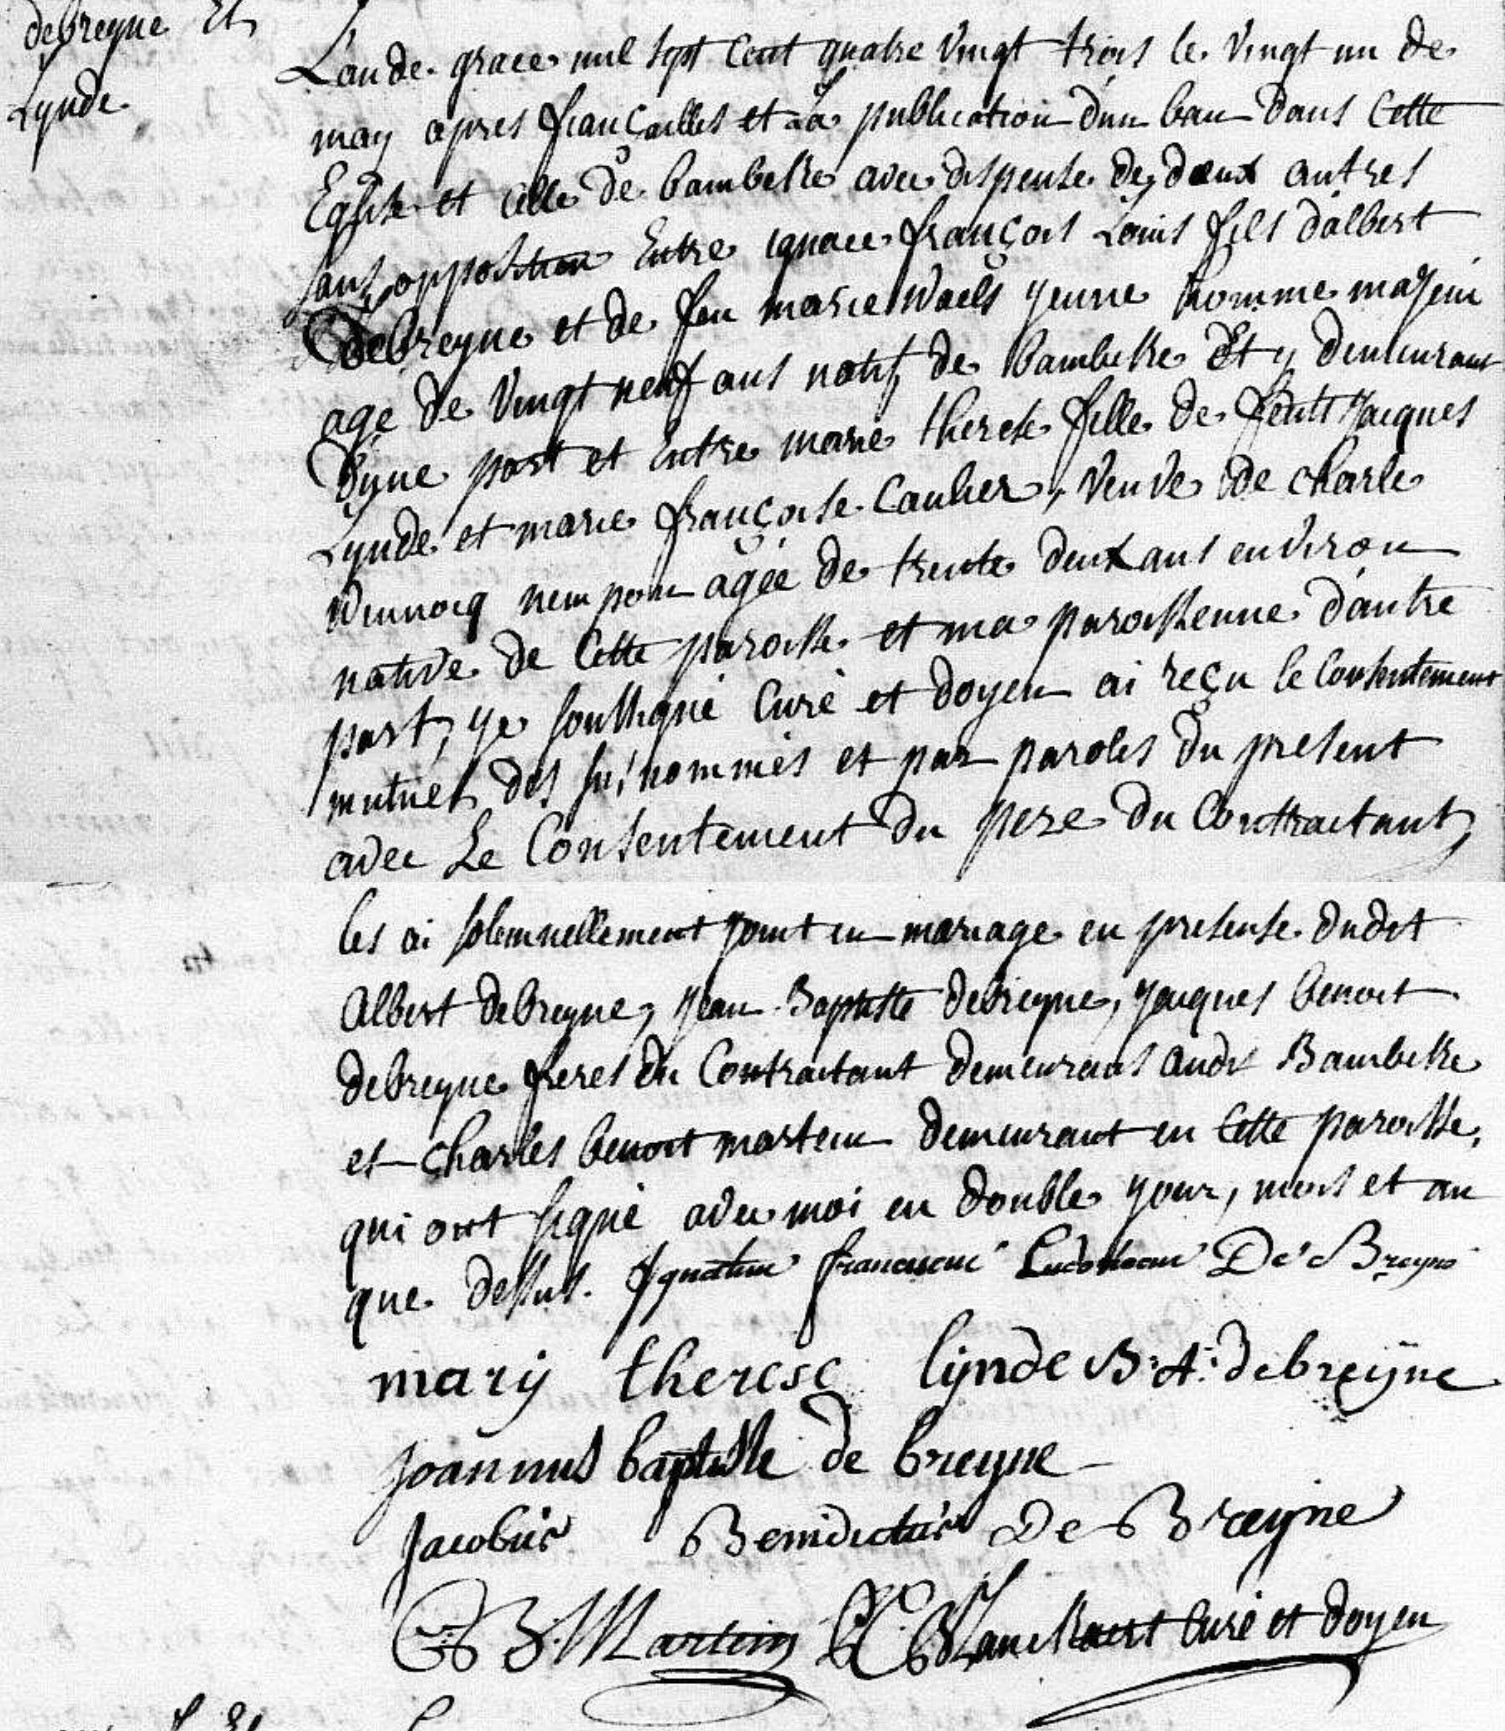 debreyne Et
Lynde
L'an de grace mil sept cent quatre vingt trois le vingt un de
may apres françailles et La publication d'un ban dans cette
Eglise et celle de bambeke avec dispense de deux autres
sans opposition Entre ignace françois Louis fils d'albert
Debreyne et de feu marie Waels yeune homme mayeur
age de vingt neuf ans natif de bambeke Et y demeurant
d'une part et Entre marie therese fille de feüt Jacques
Lynde et marie françoise Caulier, veuve de charle
Winnocq nempon agée de trente deux ans environ
native de cette paroisse et ma paroissienne d'autre
part, ye soussigné Curé et doyen ai reçu le consentement
mutuel des susnommés et par paroles du present
avec Le Consentement du pere du Contractant,
les ai solemnellement joint en mariage en presense dudit
Albert debreyne, jean Baptiste debreyne, yacques benoit
debreyne freres du Contractant demeurans audit Bambeke
et charles benoit martein demeurant en cette paroisse,
qui ont signé avec moi en double your, mois et an
que dessus. Ignatius franciscus Ludovicus De Breyne
marij therese lynde B: A: debreÿne
Joannus baptiste de breyne
Jacobus Benidictus De Breyne
C: B: Martein Curé et doyen